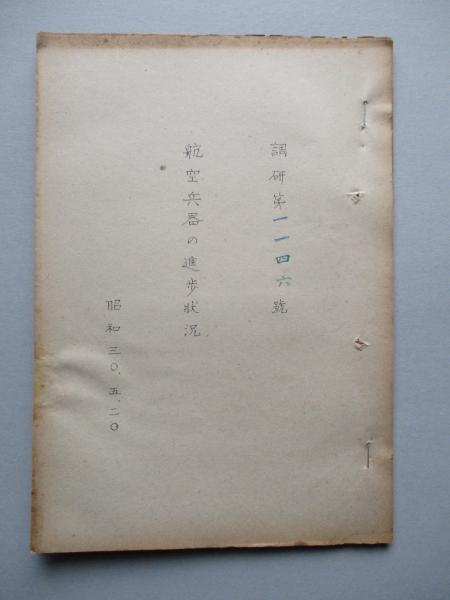 調研第一一四六號
航空兵器の進歩狀況
昭和三〇、五、二〇